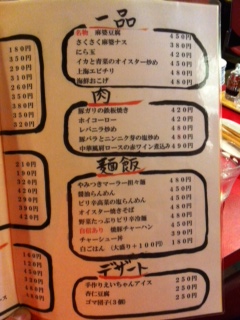 一品
名物 麻婆豆腐 450円
さくさく麻婆ナス 380円
にら玉 420円
イカと青菜のオイスター炒め 450円
上海エビチリ 480円
海鮮おこげ 480円
肉
豚ガリの鉄板焼き 420円
ホイコーロー 420円
レバニラ炒め 480円
豚バラとニンニク芽の塩炒め 480円
中華風肩ロースの赤ワイン煮込み 480円
麺飯
やみつきマーラー担々麺 480円
醤油らんめん 450円
ピリ辛高菜の塩らんめん 450円
オイスター焼きそば 450円
野菜たっぷりピリ辛冷麺 480円
自信あり 焼豚チャーハン 450円
チャーシュー丼
白ごはん (大盛り+100円) 180円
デザート
手作りえいちゃんアイス 250円
杏仁豆腐 250円
ゴマ団子(3個) 250円
180円
350円
380円
350円
350円
320円
210円
190円
380円
480円
350円